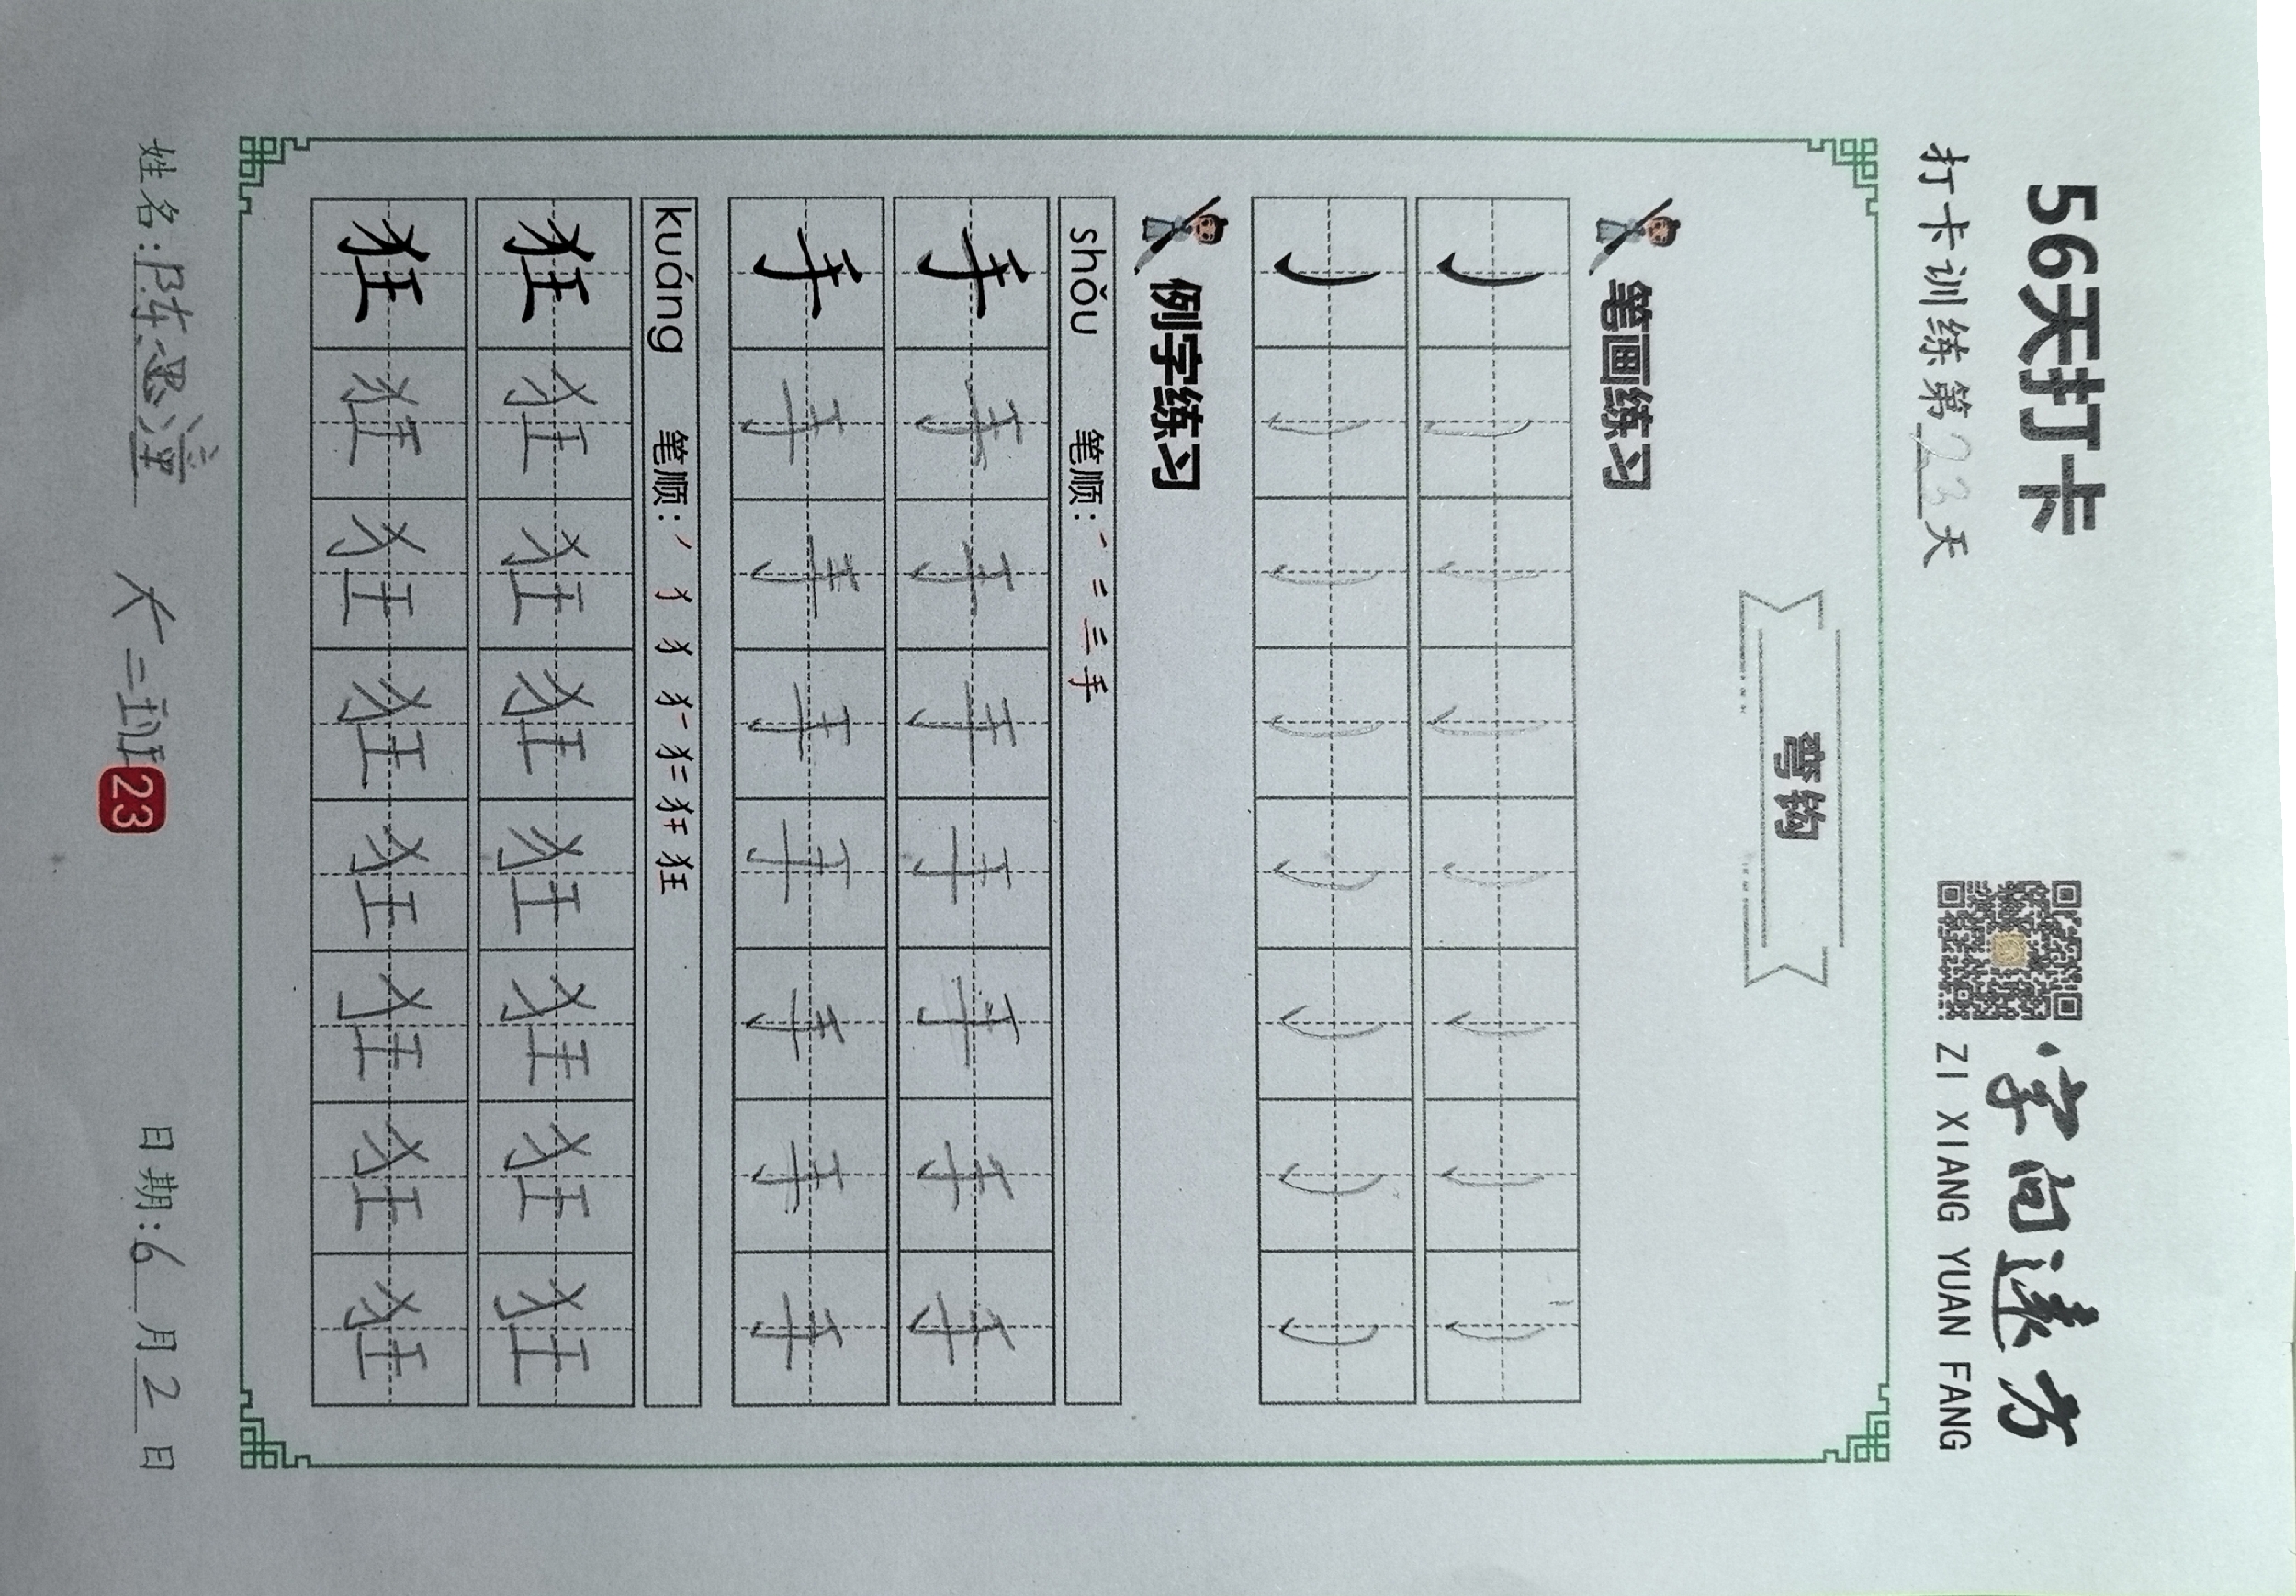 56天打卡
字向远方
打卡训练第23天
ZI XIANG YUAN FANG
弯钩
笔画练习
例字练习
shǒu 笔顺: 一 二 三 手
手 手 手 手 手 手 手 手
手 手 手 手 手 手 手 手
kuáng 笔顺: 丿 犭 犭 犭 犭 犴 狂
狂 狂 狂 狂 狂 狂 狂 狂
狂 狂 狂 狂 狂 狂 狂 狂
姓名:陈思潼 大二班 日期:6月2日
23